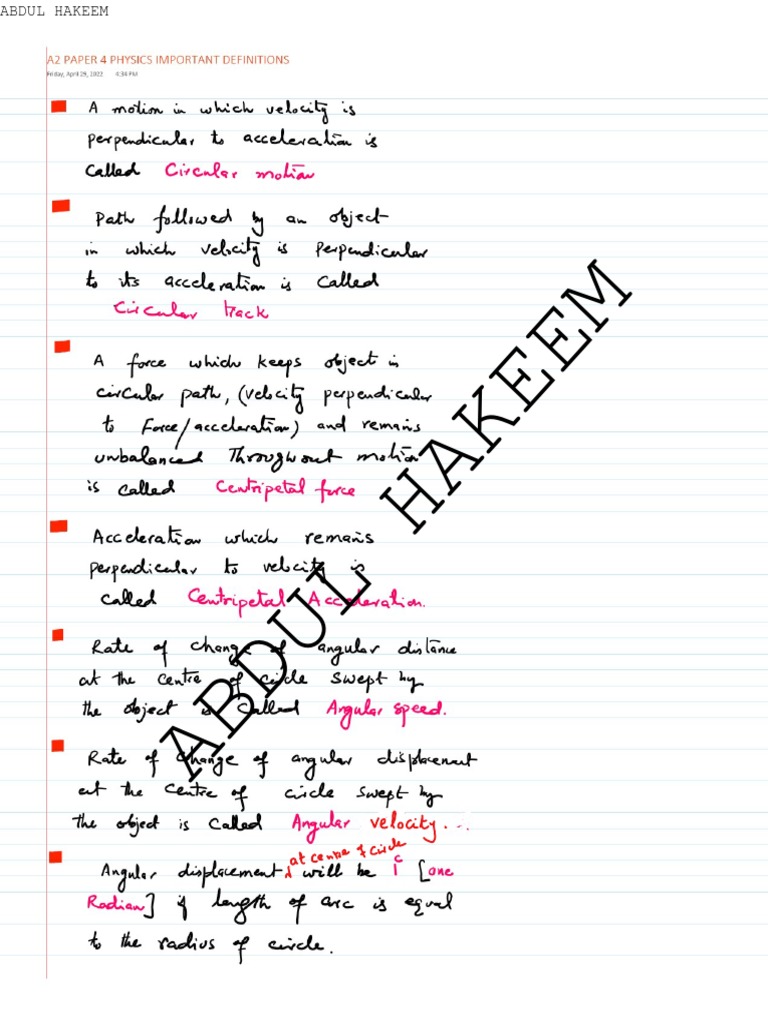 ABDUL HAKEEM
A2 PAPER 4 PHYSICS IMPORTANT DEFINITIONS
Friday, April 29, 2022 4:34 PM
A motion in which velocity is
perpendicular to acceleration is
called Circular motion
Path followed by an object
in which velocity is perpendicular
to its acceleration is called
Circular track
A force which keeps object in
circular path, (velocity perpendicular
to Force/acceleration) and remains
unbalanced Throughout motion
is called Centripetal force
Acceleration which remains
perpendicular to velocity is
called Centripetal Acceleration.
Rate of change of angular distance
at the centre of circle swept by
the object is called Angular speed.
Rate of change of angular displacement
at the centre of circle swept by
the object is called Angular velocity...
at centre of circle
Angular displacement will be 1ᶜ [one
Radian] if length of arc is equal
to the radius of circle.
ABDUL HAKEEM